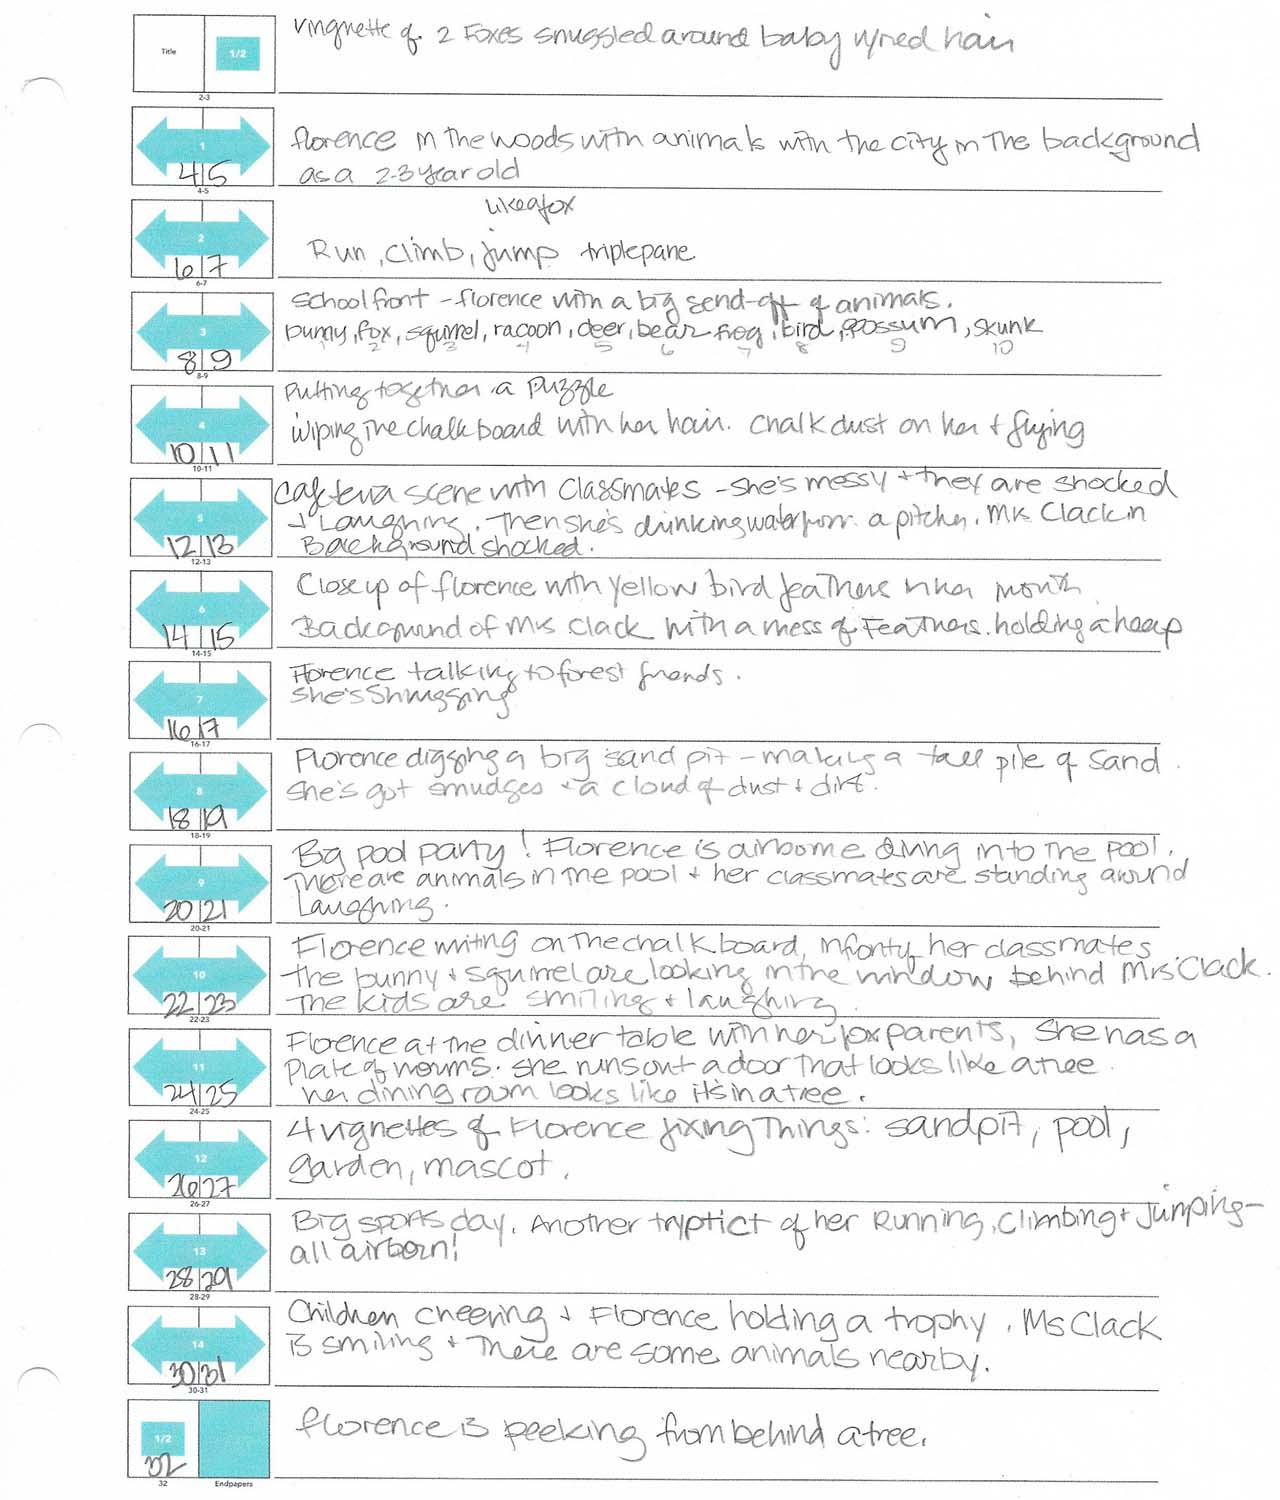 Title
1/2
Vingnette of 2 Foxes snuggled around baby w/red hair
2-3
1
florence in the woods with animals with the city in the background
as a 2-3 year old
4|5
4-5
like a fox
2
Run, climb, jump triplepane
6|7
6-7
School front - florence with a big send-off of animals.
3
bunny, fox, squirrel, racoon, deer, bear, frog, bird, opossum, skunk
1 2 3 4 5 6 7 8 9 10
8|9
8-9
Putting together a puzzle
4
Wiping the chalk board with her hair. Chalk dust on her + flying
10|11
10-11
Cafeteria scene with classmates - she's messy + they are shocked
5
+ Laughing. Then she's drinking water from a pitcher. Mrs. Clack in
Background shocked.
12|13
12-13
Close up of florence with yellow bird feathers in her mouth.
6
Background of Mrs Clack with a mess of Feathers. holding a heap
14|15
14-15
Florence talking to forest friends.
7
She's Shrugging
16|17
16-17
Florence digging a big sand pit - making a tall pile of sand.
8
She's got smudges + a cloud of dust + dirt.
18|19
18-19
Big pool party! Florence is airborne diving into the pool.
9
There are animals in the pool + her classmates are standing around
Laughing.
20|21
20-21
Florence writing on the chalk board, in front of her classmates
10
the bunny + squirrel are looking in the window behind Mrs Clack.
The kids are smiling + laughing.
22|23
22-23
Florence at the dinner table with her fox parents, She has a
11
plate of worms. she runs out a door that looks like a tree.
her dining room looks like its in a tree.
24|25
24-25
4 vignettes of Florence fixing things: sandpit, pool,
12
garden, mascot.
26|27
26-27
Big sports day. Another tryptict of her Running, Climbing + Jumping -
13
all airborn!
28|29
28-29
Children cheering + Florence holding a trophy. Ms Clack
14
is smiling + There are some animals nearby.
30|31
30-31
1/2
florence is peeking from behind a tree.
32
32
Endpapers